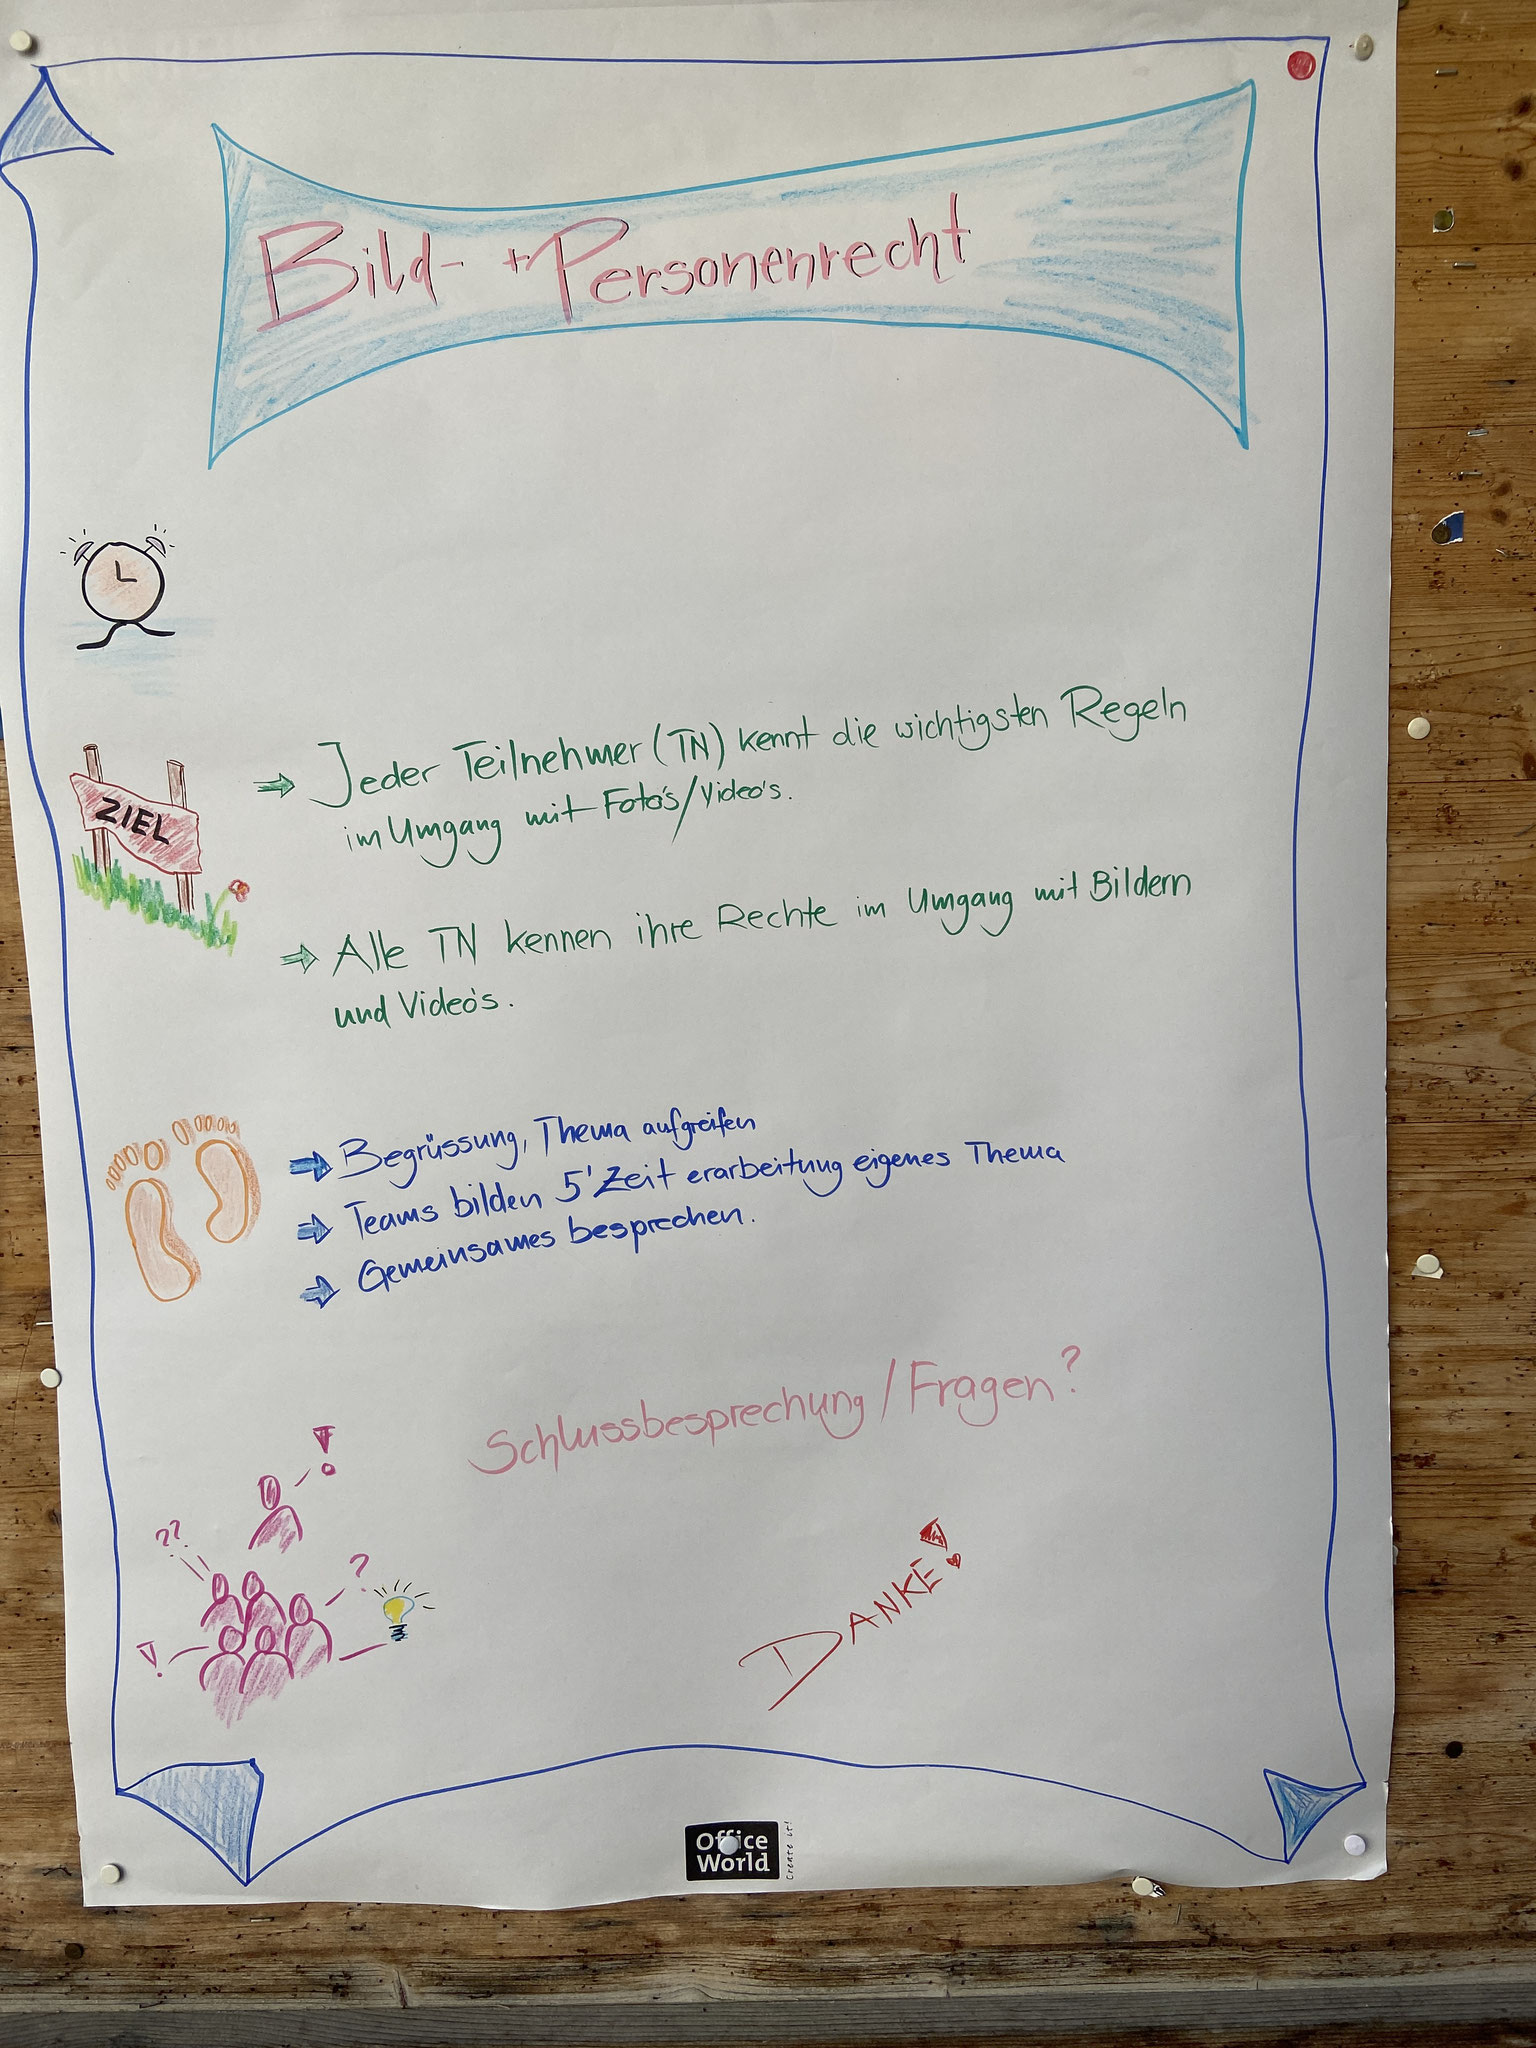 Bild- + Personenrecht
ZIEL
Jeder Teilnehmer (TN) kennt die wichtigsten Regeln
im Umgang mit Foto's/Video's.
Alle TN kennen ihre Rechte im Umgang mit Bildern
und Video's.
Begrüssung, Thema aufgreifen
Teams bilden 5' Zeit erarbeitung eigenes Thema
Gemeinsames besprechen.
Schlussbesprechung / Fragen?
!
??
?
!
DANKE!
Office
World
Create it!